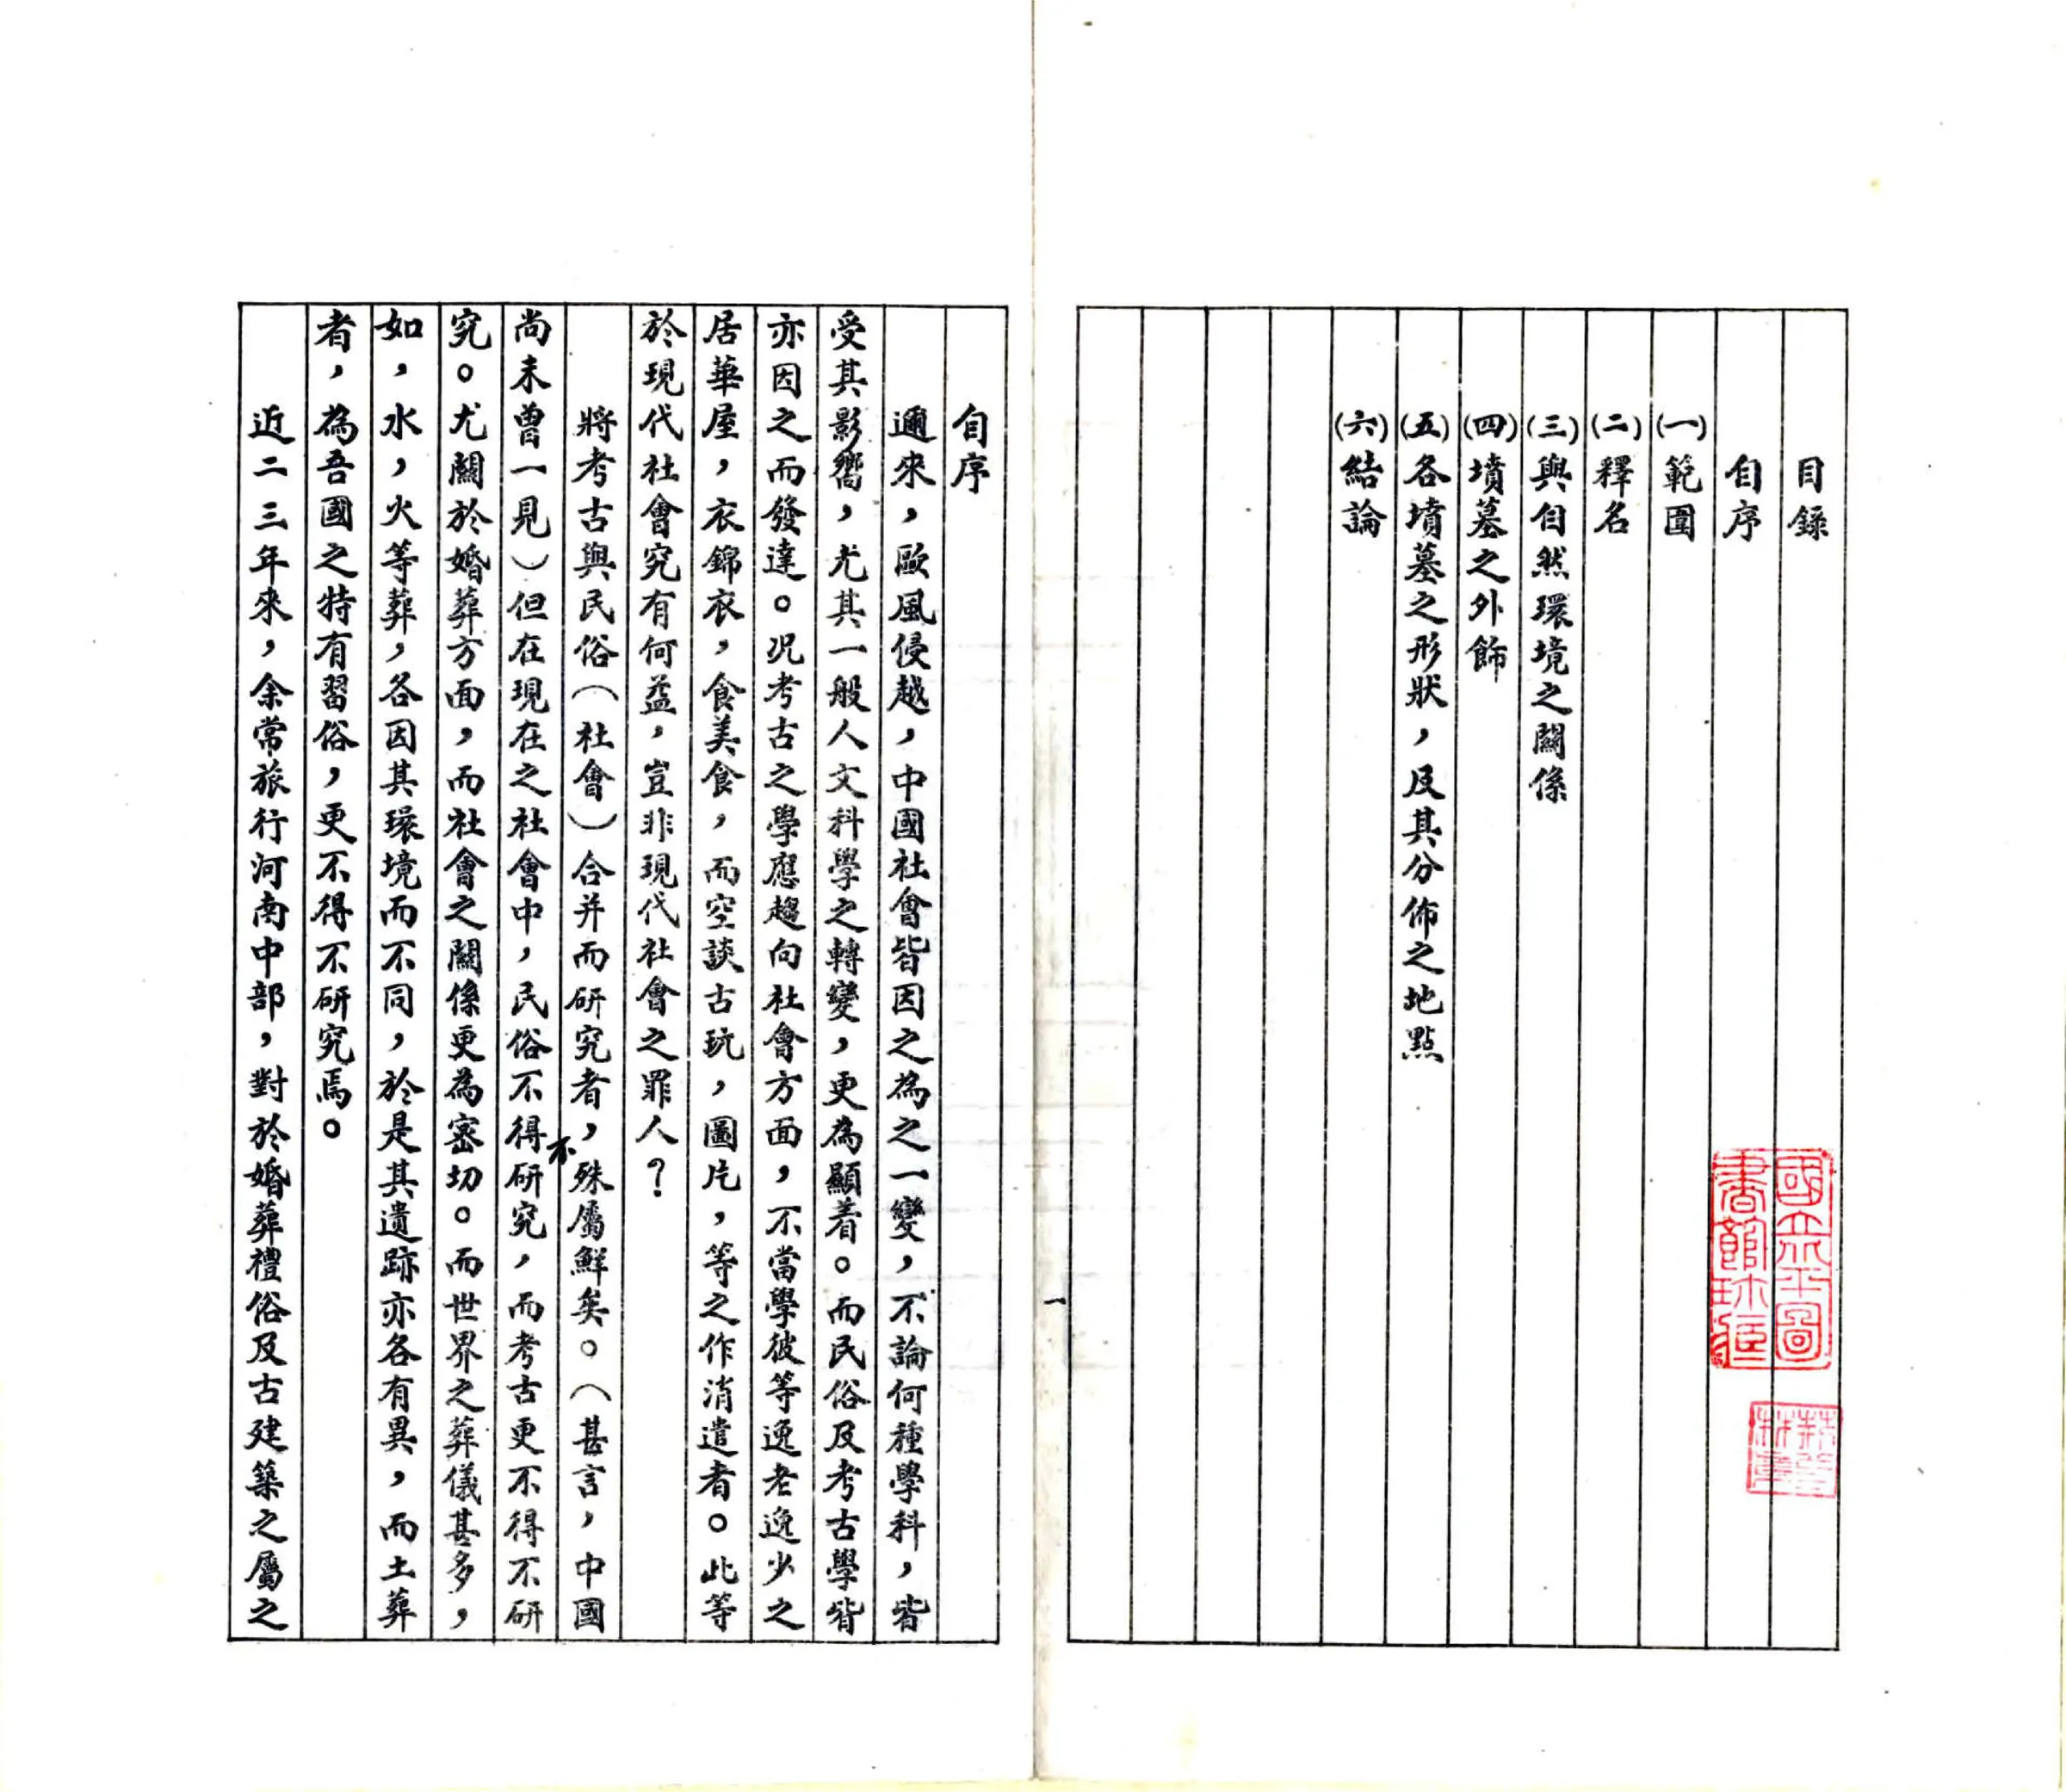 目錄
自序
(一)範圍
(二)釋名
(三)與自然環境之關係
(四)墳墓之外飾
(五)各墳墓之形狀，及其分佈之地點
(六)結論
國立北平圖
書館珍藏
一
自序
邇來，歐風侵越，中國社會皆因之為之一變，不論何種學科，皆
受其影響，尤其一般人文科學之轉變，更為顯着。而民俗及考古學皆
亦因之而發達。況考古之學應趨向社會方面，不當學彼等逸老逸少之
居華屋，衣錦衣，食美食，而空談古玩，圖片，等之作消遣者。此等
於現代社會究有何益，豈非現代社會之罪人？
將考古與民俗（社會）合并而研究者，殊屬鮮矣。（甚言，中國
尚未曾一見）但在現在之社會中，民俗不得不研究，而考古更不得不研
究。尤關於婚葬方面，而社會之關係更為密切。而世界之葬儀甚多，
如，水，火等葬，各因其環境而不同，於是其遺跡亦各有異，而土葬
者，為吾國之特有習俗，更不得不研究焉。
近二三年來，余常旅行河南中部，對於婚葬禮俗及古建築之屬之